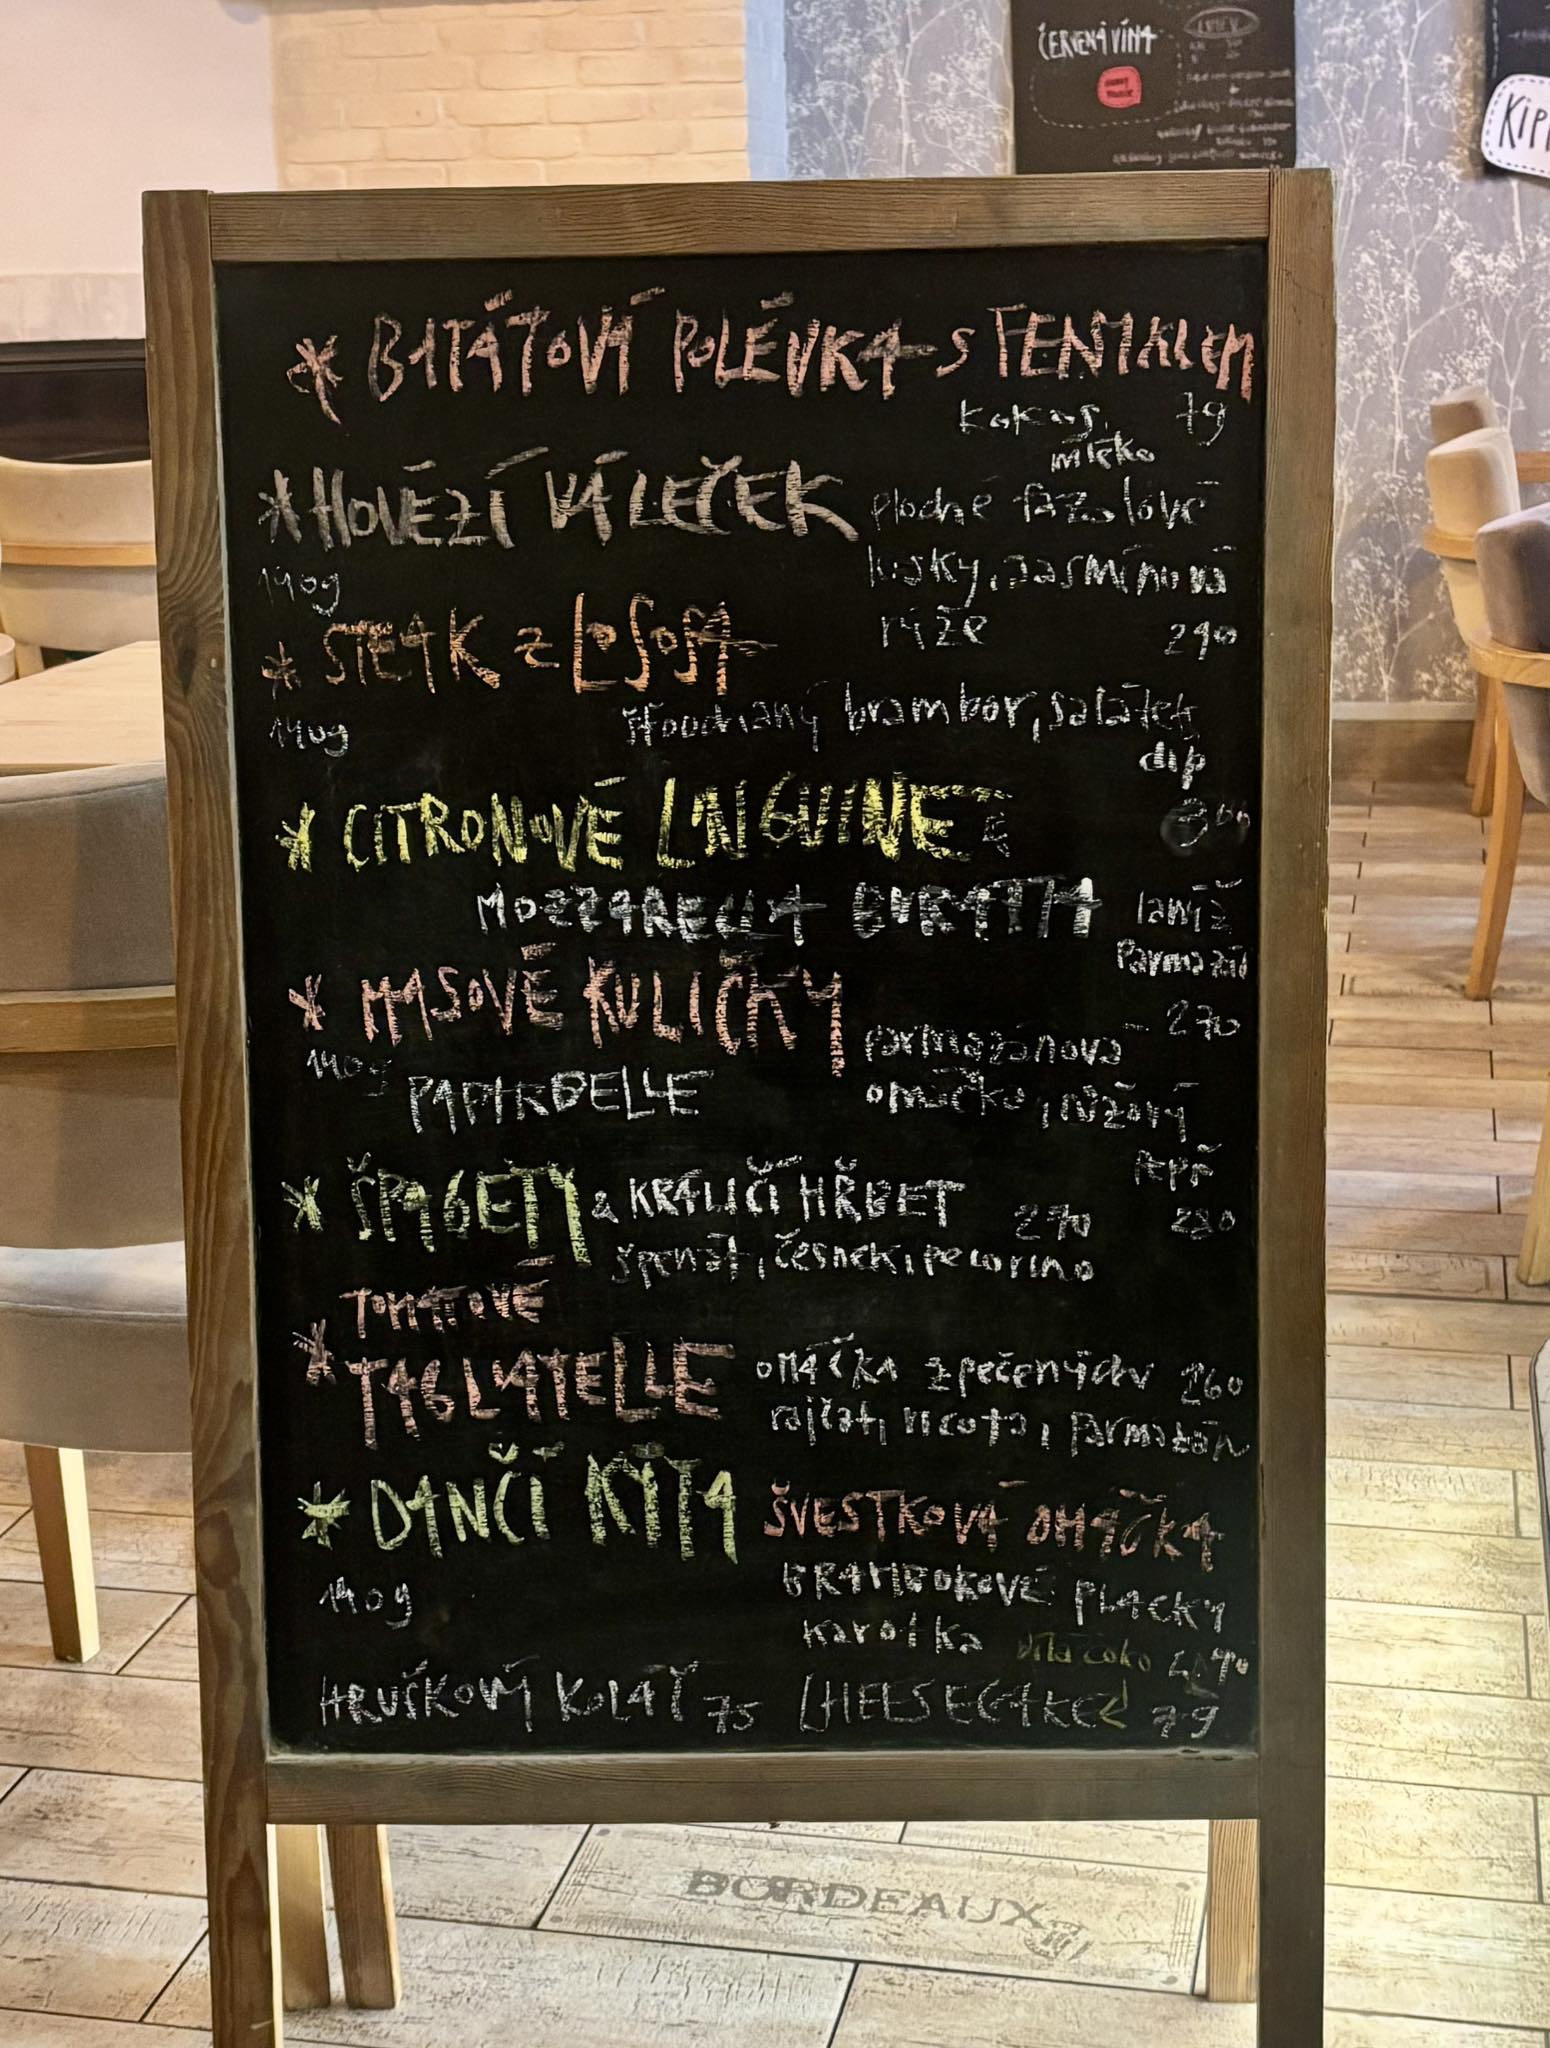 ČERVENÁ VÍNA
KIPP
* BATÁTOVÁ POLÉVKA S FENYKLEM
kokos. 79
mléko
* HOVĚZÍ VÁLEČEK plodné fazolové
140g lusky, jasmínová
rýže 290
* STEAK z LOSOSA
140g šťouchaný brambor, salátek
dip
300
* CITRONOVÉ LINGUINE &
MOZZARELLA BURATTA lanýž
parmazán
270
* MASOVÉ KULIČKY parmazánová
140g PAPARDELLE omáčka, růžový
pepř
280
* ŠPAGETY & KRÁLIČÍ HŘBET 270
špenát, česnek, pecorino
TOMATOVÉ
* TAGLIATELLE OMÁČKA z pečených 260
rajčat, ricota, parmazán
* DANČÍ KÝTA ŠVESTKOVÁ OMÁČKA
140g BRAMBOROVÉ PLACKY
karotka bílá čoko
HRUŠKOVÝ KOLÁČ 75 CHEESECAKE 79
BORDEAUX